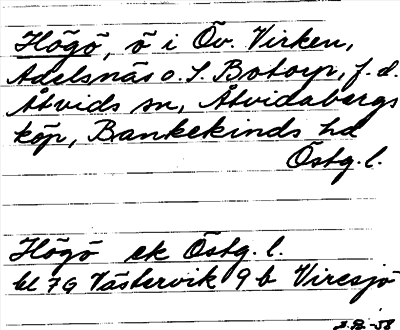 Högö, ö i Öv. Virken,
Adelsnäs o. S. Botorp, f. d.
Åtvids sn, Åtvidabergs
köp, Bankekinds hd
Östg. l.
Högö ek Östg. l.
bl 7G Västervik 9 b Viresjö
-58